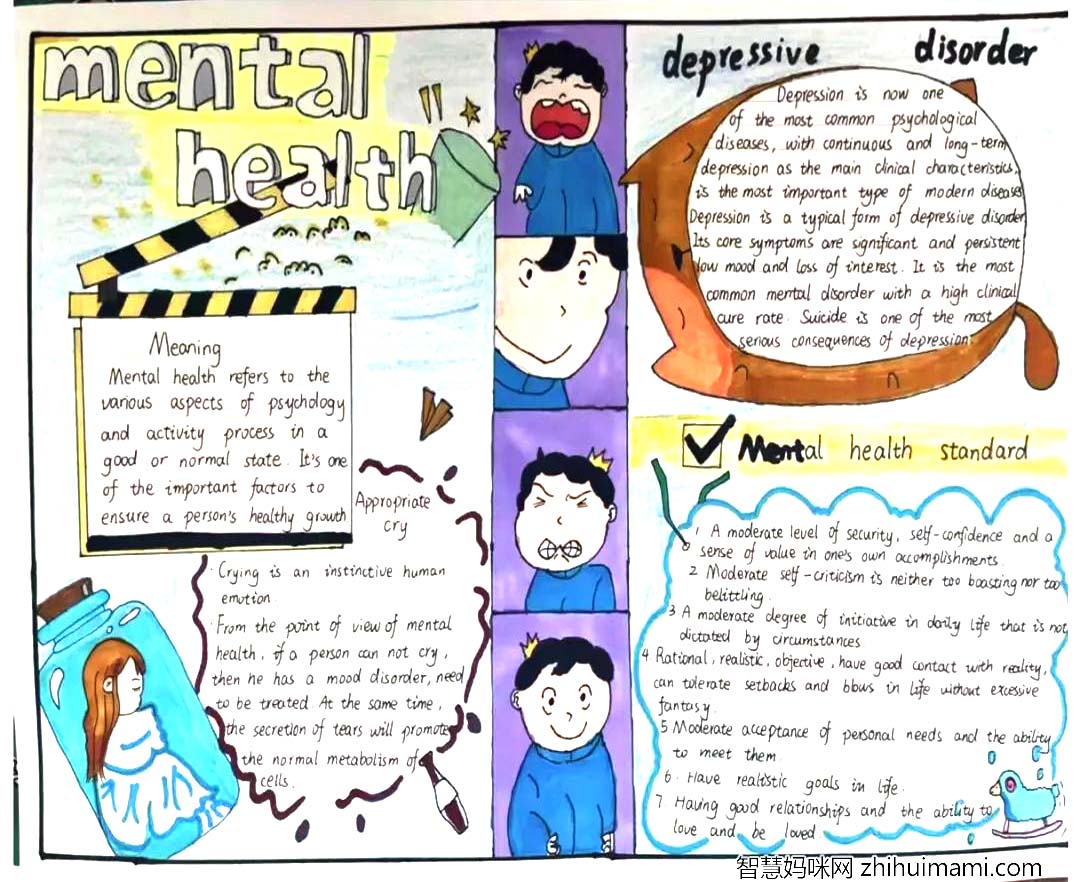 mental
health
Meaning
Mental health refers to the
various aspects of psychology
and activity process in a
good or normal state. It's one
of the important factors to
ensure a person's healthy growth
Appropriate
cry
· Crying is an instinctive human
emotion.
· From the point of view of mental
health, if a person can not cry,
then he has a mood disorder, need
to be treated. At the same time,
the secretion of tears will promote
the normal metabolism of
cells.
depressive disorder
Depression is now one
of the most common psychological
diseases, with continuous and long-term
depression as the main clinical characteristics,
is the most important type of modern diseases
Depression is a typical form of depressive disorder
Its core symptoms are significant and persistent
low mood and loss of interest. It is the most
common mental disorder with a high clinical
cure rate. Suicide is one of the most
serious consequences of depression.
Mental health standard
1 A moderate level of security, self-confidence and a
sense of value in one's own accomplishments.
2 Moderate self-criticism is neither too boasting nor too
belittling.
3 A moderate degree of initiative in daily life that is not
dictated by circumstances
4 Rational, realistic, objective, have good contact with reality,
can tolerate setbacks and blows in life without excessive
fantasy.
5 Moderate acceptance of personal needs and the ability
to meet them.
6. Have realistic goals in life.
7 Having good relationships and the ability to
love and be loved
智慧妈咪网 zhihuimami.com